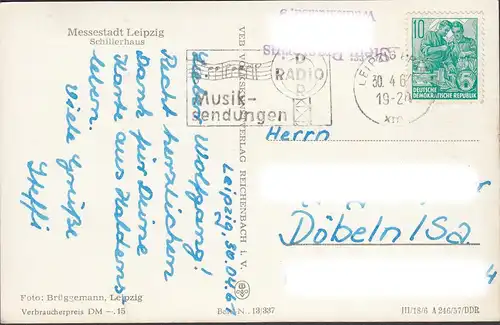 Messestadt Leipzig
Schillerhaus
Leipzig, 30.04.61
Lieber Wolfgang!
Recht herzlichen
Dank für Deine
Karte aus Haldens-
leben.
Viele Grüße
Steffi
Foto: Brüggemann, Leipzig
Verbraucherpreis DM –.15
VEB VOLKSKUNSTVERLAG REICHENBACH I. V.
Best.-N. 13/337
RADIO
Musik-
sendungen
LEIPZIG
30. 4. 61
19-20
10
DEUTSCHE
DEMOKRATISCHE REPUBLIK
Herrn
Döbeln/Sa.
III/18/6 A 246/57/DDR